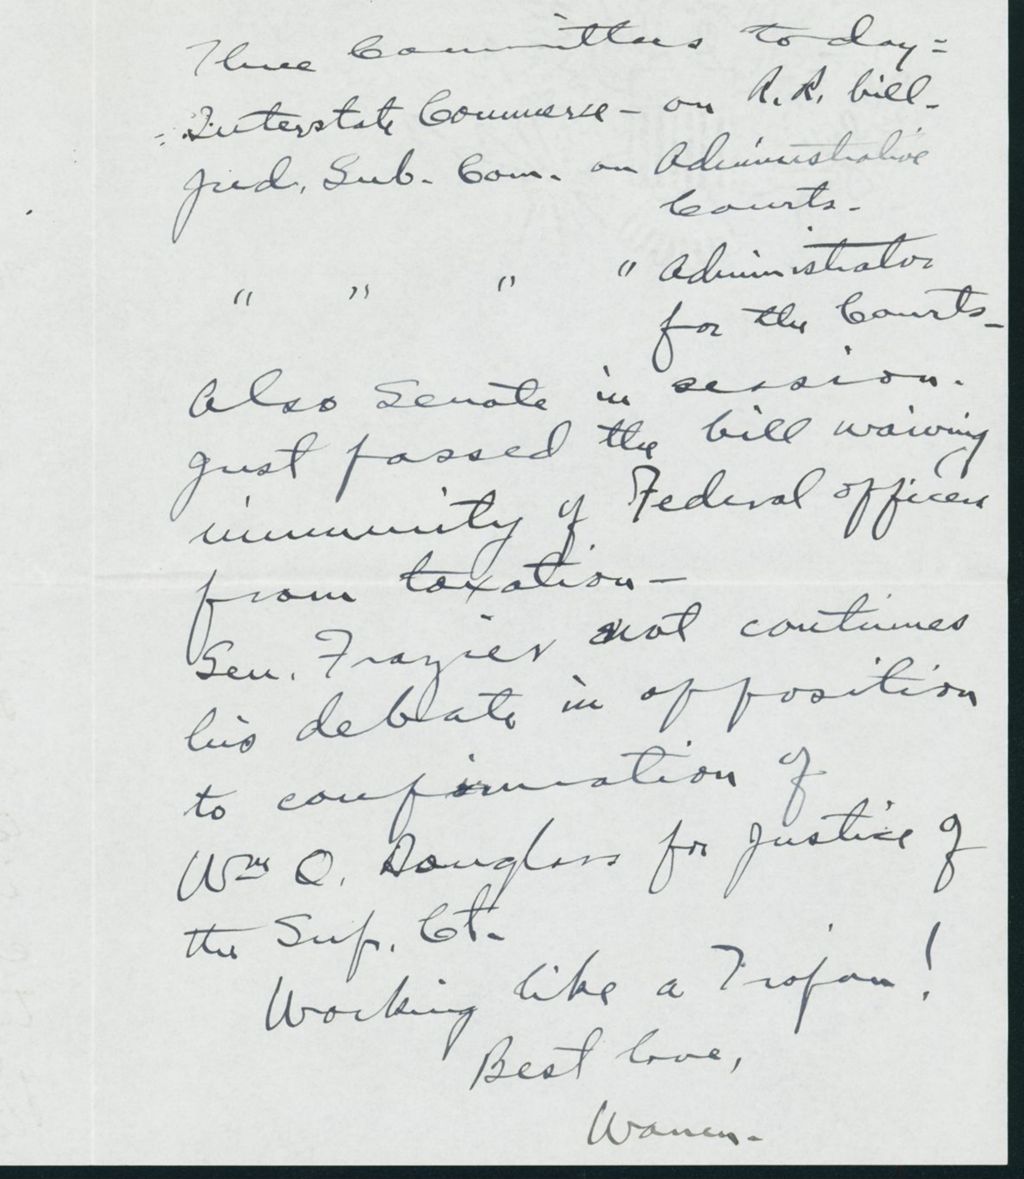 Three Committees to day =
Interstate Commerce - on R.R. bill -
Jud. Sub. Com. on Administrative
Courts -
" " " " Administrator
for the Courts -
Also Senate in session.
Just passed the bill waiving
immunity of Federal officers
from taxation -
Sen. Frazier not continues
his debate in opposition
to confirmation of
Wm O. Douglass for Justice of
the Sup. Ct.
Working like a Trojan!
Best love,
Warren -